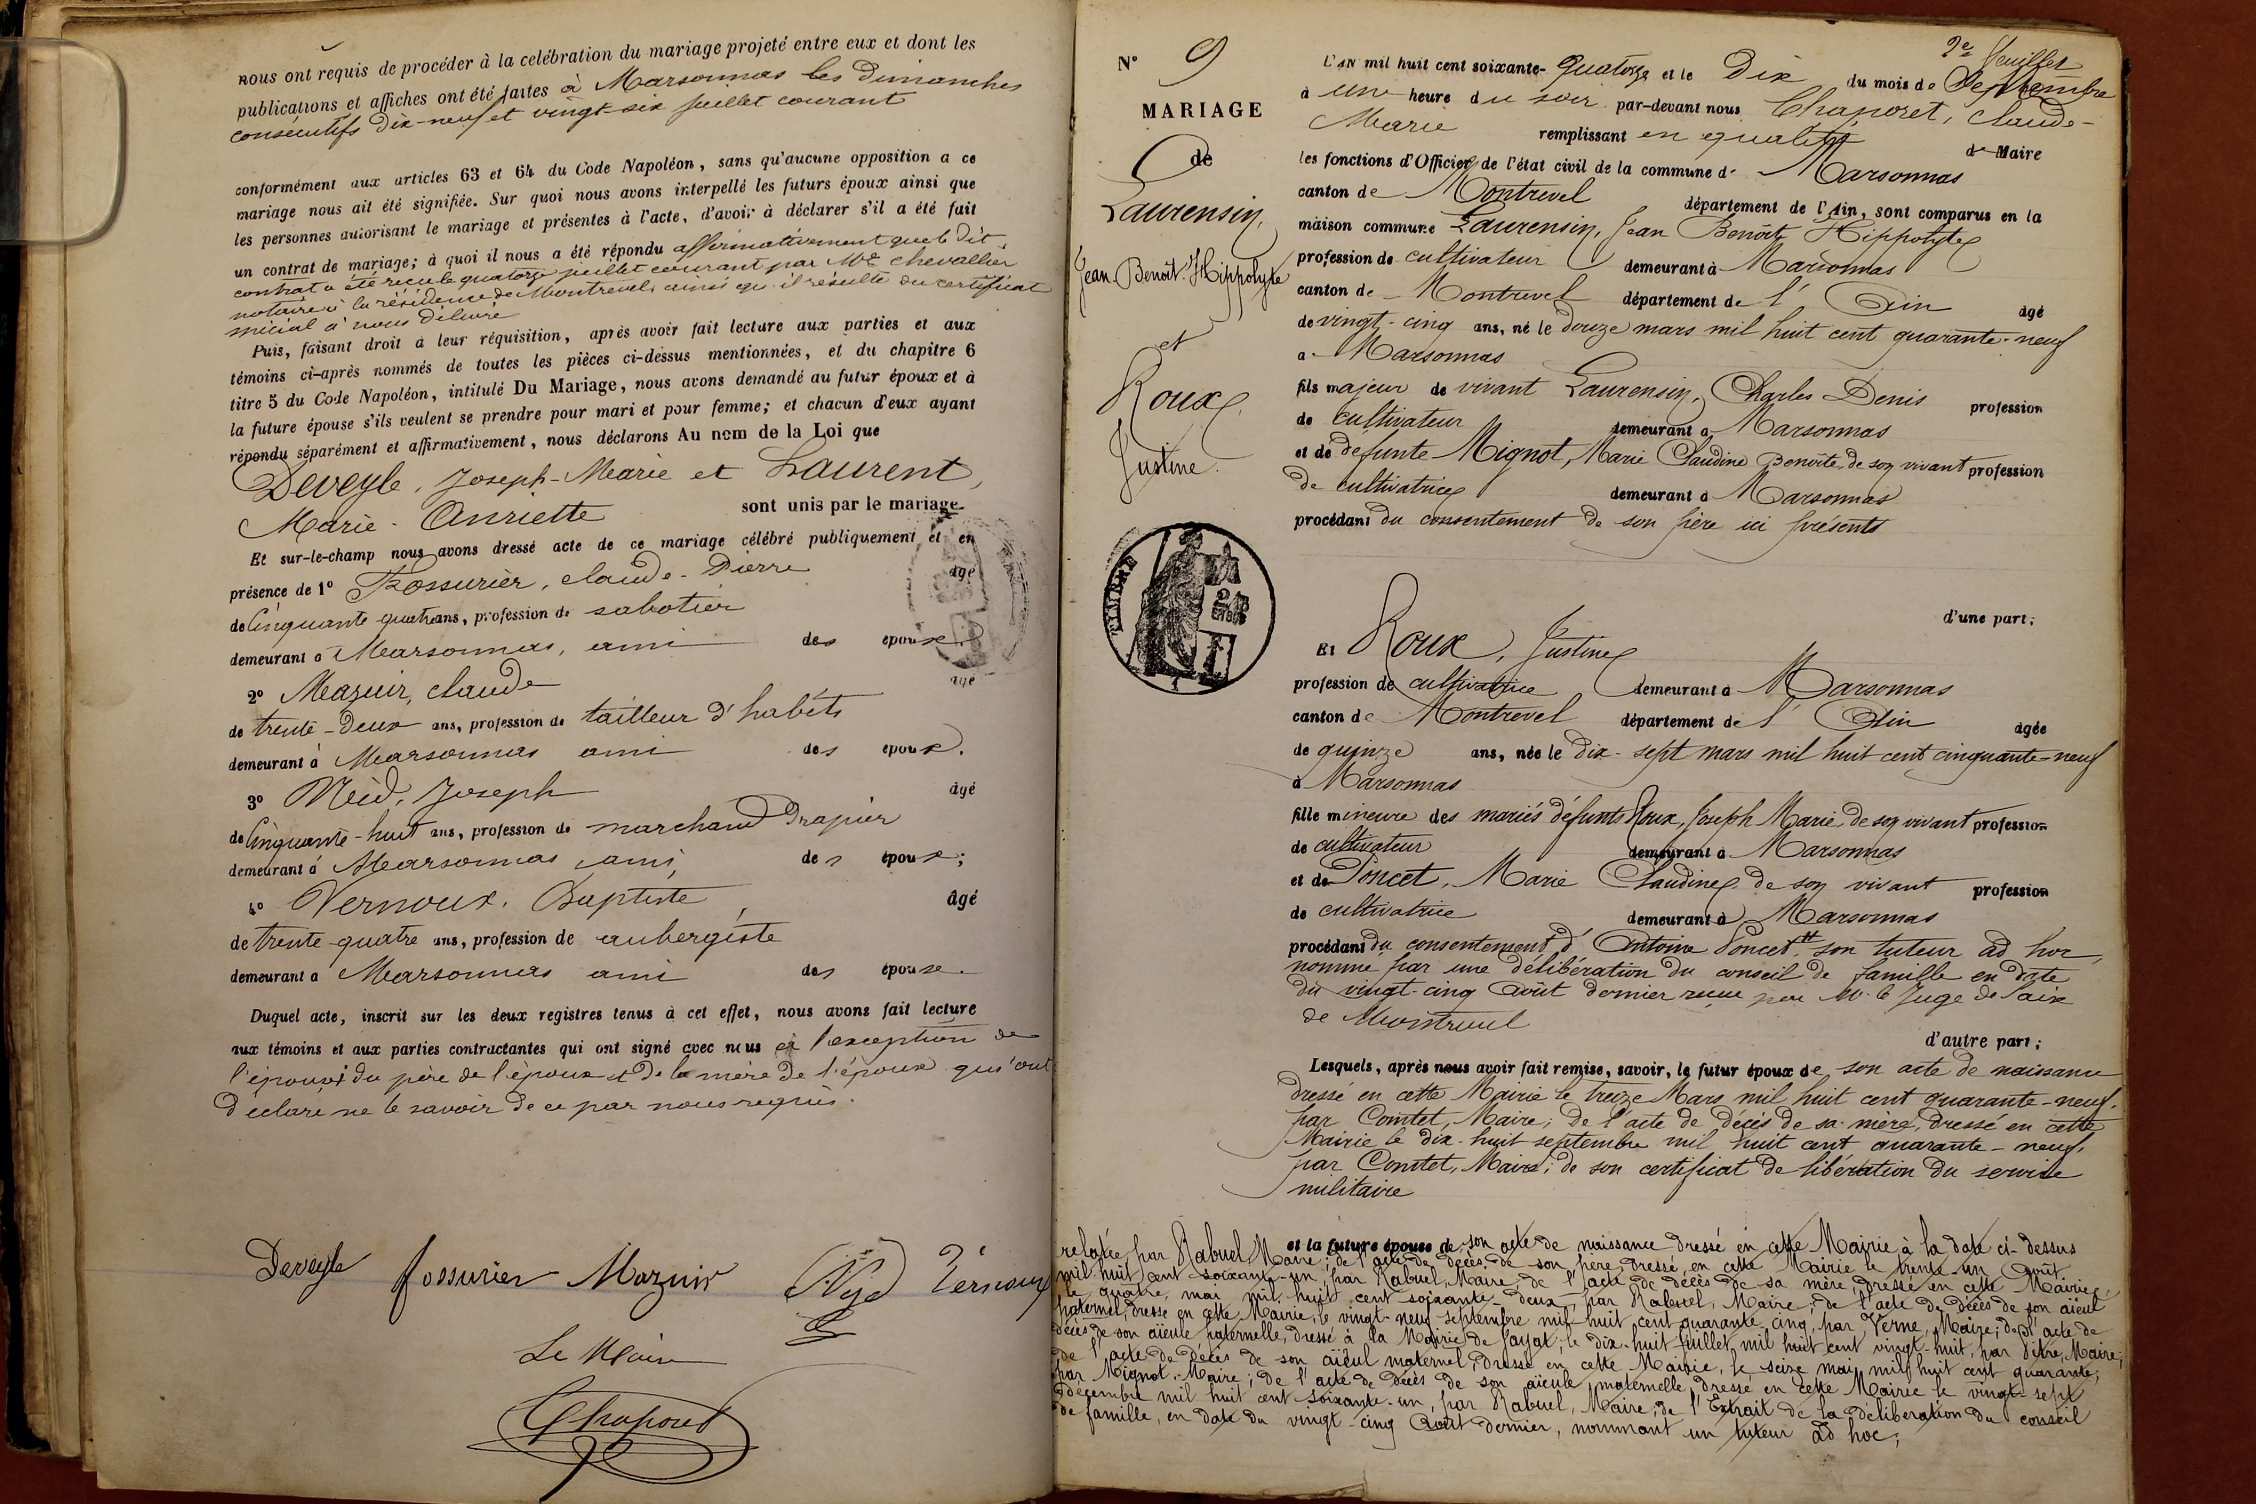 nous ont requis de procéder à la celébration du mariage projeté entre eux et dont les
publications et affiches ont été faites à Marsonnas les dimanches
consécutifs dix-neuf et vingt-six juillet courant
conformément aux articles 63 et 64 du Code Napoléon, sans qu'aucune opposition a ce
mariage nous ait été signifiée. Sur quoi nous avons interpellé les futurs époux ainsi que
les personnes autorisant le mariage et présentes à l'acte, d'avoir à déclarer s'il a été fait
un contrat de mariage; à quoi il nous a été répondu affirmativement que le dit
contrat a été reçu le quatorze juillet courant par Me Chevallier
notaire à la résidence de Montrevel, ainsi qu'il résulte du certificat
à nous délivré
Puis, faisant droit à leur réquisition, après avoir fait lecture aux parties et aux
témoins ci-après nommés de toutes les pièces ci-dessus mentionnées, et du chapitre 6
titre 5 du Code Napoléon, intitulé Du Mariage, nous avons demandé au futur époux et à
la future épouse s'ils veulent se prendre pour mari et pour femme; et chacun d'eux ayant
répondu séparément et affirmativement, nous déclarons Au nom de la Loi que
Deveyle, Joseph-Marie et Laurent,
Marie-Anriette sont unis par le mariage.
Et sur-le-champ nous avons dressé acte de ce mariage célébré publiquement et en
présence de 1o Fossurier, claude-Pierre âgé
de Cinquante quatre ans, profession de sabotier
demeurant à Marsonnas, ami des époux.
2o Mazuir, claude âgé
de trente-deux ans, profession de tailleur d'habits
demeurant à Marsonnas ami des époux.
3o Joseph âgé
de Cinquante-huit ans, profession de marchand Drapier
demeurant à Marsonnas, ami, des époux;
4o Vernoux, Baptiste, âgé
de trente-quatre ans, profession de aubergiste
demeurant à Marsonnas ami des époux.
Duquel acte, inscrit sur les deux registres tenus à cet effet, nous avons fait lecture
aux témoins et aux parties contractantes qui ont signé avec nous à l'exception de
l'épouse du père de l'époux et de la mère de l'époux qui ont
déclaré ne le savoir de ce par nous requis.
Deveyle fossurier Mazuir Vernoux
Le Maire
Chaporet
2e feuillet
No 9
MARIAGE
de
Laurensin,
Jean-Benoit-Hippolyte
et
Roux,
Justine.
TIMBRE
L'AN mil huit cent soixante-quatorze et le Dix du mois de Septembre
à une heure du soir par-devant nous Chaporet, Claude-
Marie remplissant en qualité de Maire
les fonctions d'Officier de l'état civil de la commune de Marsonnas
canton de Montrevel département de l'Ain, sont comparus en la
maison commune Laurensin, Jean Benoît Hippolyte
profession de cultivateur demeurant à Marsonnas
canton de Montrevel département de l'Ain âgé
de vingt-cinq ans, né le douze mars mil huit cent quarante-neuf
à Marsonnas
fils majeur de vivant Laurensin, Charles Denis profession
de cultivateur demeurant à Marsonnas
et de défunte Mignot, Marie Claudine Benoîte, de son vivant profession
de cultivatrice demeurant à Marsonnas
procédant du consentement de son père ici présents
d'une part;
Et Roux, Justine
profession de cultivatrice demeurant à Marsonnas
canton de Montrevel département de l'Ain âgée
de quinze ans, née le dix-sept mars mil huit cent cinquante-neuf
à Marsonnas
fille mineure des mariés défunts Roux, Joseph Marie, de son vivant profession
de cultivateur demeurant à Marsonnas
et de Poncet, Marie Claudine de son vivant profession
de cultivatrice demeurant à Marsonnas
procédant du consentement d'Antoine Poncet, son tuteur ad hoc,
nommé par une délibération du conseil de famille en date
du vingt-cinq Août dernier reçue par Mr le Juge de Paix
de Montrevel
d'autre part;
Lesquels, après nous avoir fait remise, savoir, le futur époux de son acte de naissance
dressé en cette Mairie le treize Mars mil huit cent quarante-neuf,
par Comtet, Maire; de l'acte de décès de sa mère, dressé en cette
Mairie le dix-huit septembre mil huit cent quarante-neuf,
par Comtet, Maire; de son certificat de libération du service
militaire
et la future épouse de son acte de naissance dressé en cette Mairie à la date ci-dessus
relatée par Rabuel, Maire; de l'acte de décès de son père dressé en cette Mairie le trente-un Août
mil huit cent soixante-un, par Rabuel, Maire; de l'acte de décès de sa mère, dressé en cette Mairie,
le quatre mai mil huit cent soixante-deux, par Rabuel, Maire; de l'acte de décès de son aïeul
paternel, dressé en cette Mairie, le vingt-neuf septembre mil huit cent quarante-cinq, par Verne, Maire; de l'acte de
décès de son aïeule paternelle, dressé à la Mairie de Jayat, le dix-huit juillet mil huit cent vingt-huit, par Maire;
de l'acte de décès de son aïeul maternel, dressé en cette Mairie, le seize mai mil huit cent quarante,
par Mignot, Maire; de l'acte de décès de son aïeule maternelle, dressé en cette Mairie le vingt-sept
décembre mil huit cent soixante-un, par Rabuel, Maire; de l'Extrait de la délibération du conseil
de famille, en date du vingt-cinq Août dernier, nommant un tuteur ad hoc;